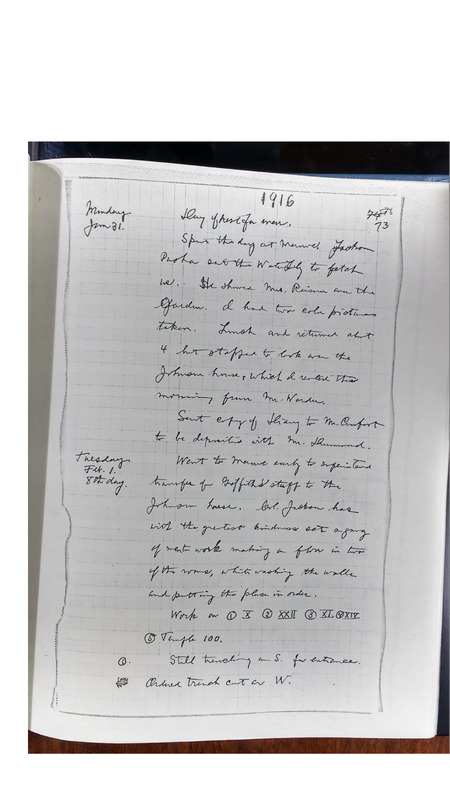 1916
Monday
Jan 31.
73
Day of rest for men.
Spent the day at Merawi. Jackson
Pasha sent the Water Lily to fetch
us. He showed Mrs. Reisner over the
Garden. I had two color pictures
taken. Lunch and returned about
4 but stopped to look over the
Johnson house, which I rented this
morning from Mr.
Sent copy of Diary to Mr.
to be deposited with Mr. Drummond.
Tuesday
Feb. 1.
8th day.
Went to Merawi early to superintend
transfer of Griffith's staff to the
Johnson house. Col. Jackson has
with the greatest kindness set a gang
of men to work making a floor in two
of the rooms, whitewashing the walls
and putting the place in order.
Work on ① X ② XXII ③ XL ④ XIV
⑤ Temple 100.
①. Still trenching on S. for entrance.
Ordered trench cut on W.